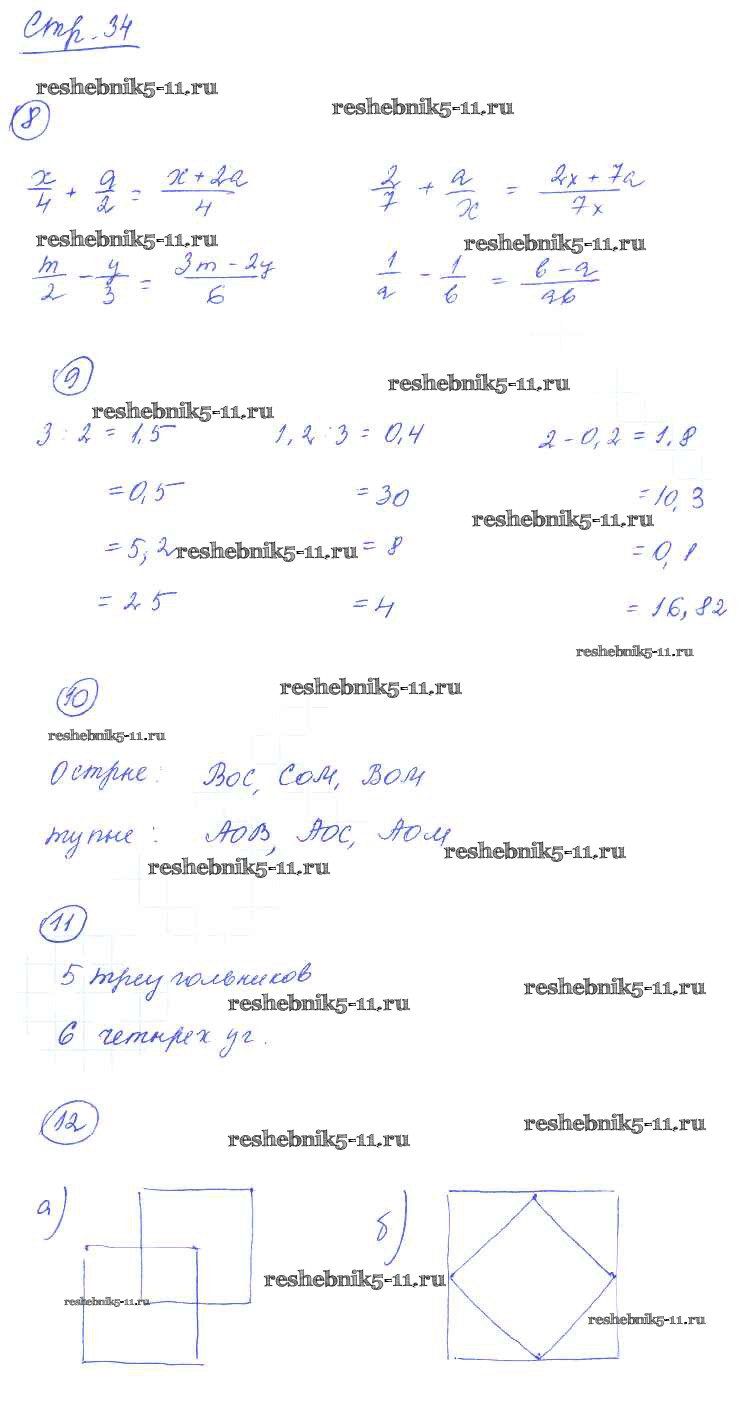 Стр. 34
reshebnik5-11.ru
reshebnik5-11.ru
8
x/4 + a/2 = (x+2a)/4    2/7 + a/x = (2x+7a)/7x
reshebnik5-11.ru
reshebnik5-11.ru
m/2 - y/3 = (3m-2y)/6    1/a - 1/b = (b-a)/ab
9
reshebnik5-11.ru
reshebnik5-11.ru
3:2=1,5    1,2:3=0,4    2-0,2=1,8
=0,5    =30    =10,3
reshebnik5-11.ru
=5,2 reshebnik5-11.ru =8    =0,1
=25    =4    =16,82
reshebnik5-11.ru
10
reshebnik5-11.ru
reshebnik5-11.ru
Острые: ВОС, СОМ, ВОМ
тупые: АОВ, АОС, АОМ
reshebnik5-11.ru
reshebnik5-11.ru
11
5 треугольников
reshebnik5-11.ru
reshebnik5-11.ru
6 четырех уг.
12
reshebnik5-11.ru
reshebnik5-11.ru
а)    б)
reshebnik5-11.ru
reshebnik5-11.ru
reshebnik5-11.ru